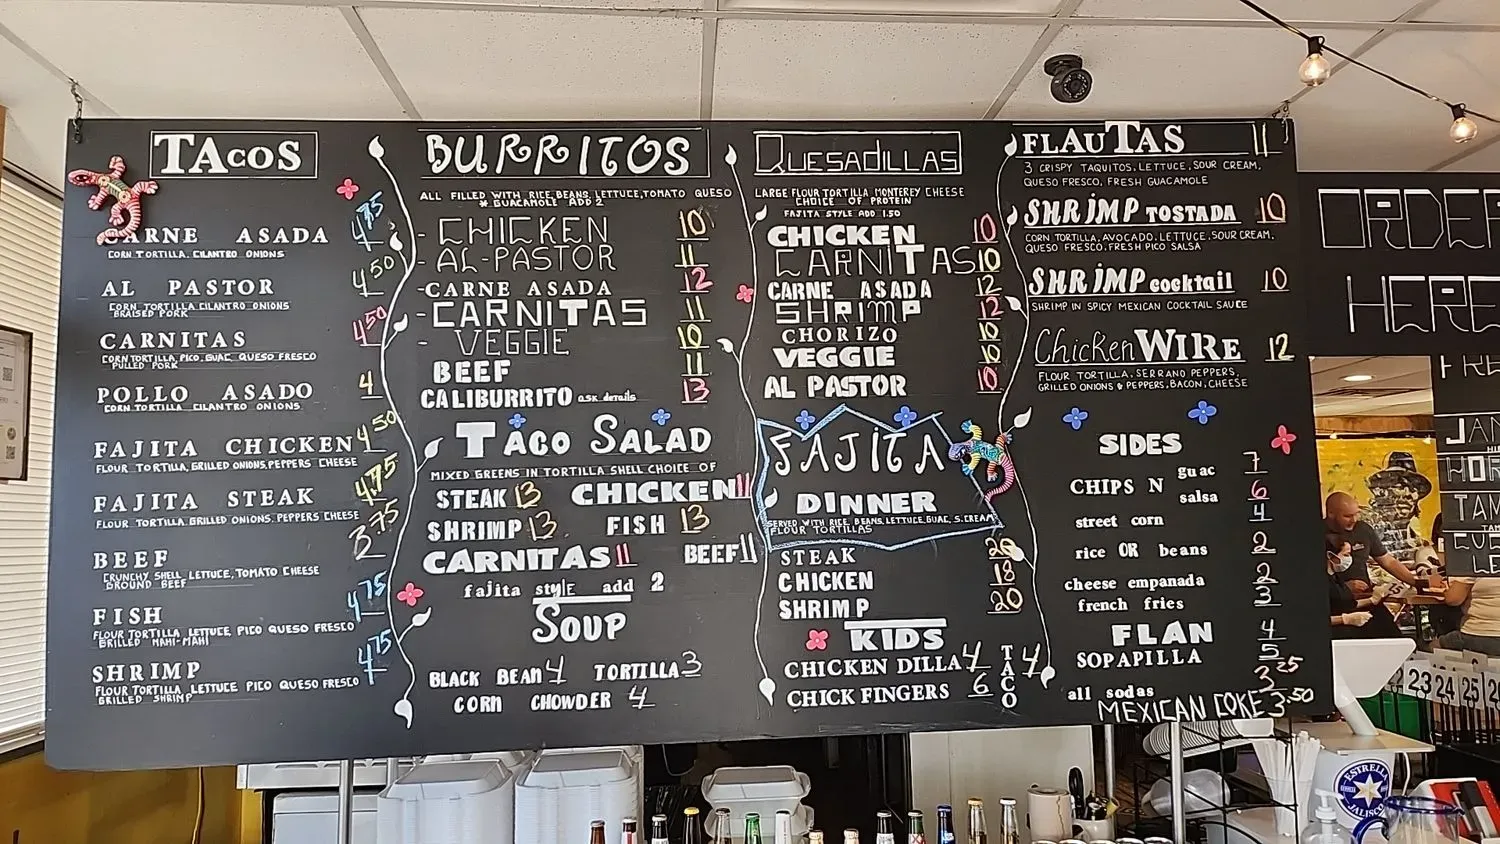 TACOS
CARNE ASADA 4.75
CORN TORTILLA, CILANTRO ONIONS
AL PASTOR 4.50
CORN TORTILLA CILANTRO ONIONS
BRAISED PORK
CARNITAS 4.50
CORN TORTILLA, PICO, GUAC, QUESO FRESCO
PULLED PORK
POLLO ASADO 4
CORN TORTILLA CILANTRO ONIONS
FAJITA CHICKEN 4.50
FLOUR TORTILLA, GRILLED ONIONS, PEPPERS CHEESE
FAJITA STEAK 4.75
FLOUR TORTILLA, GRILLED ONIONS, PEPPERS CHEESE
BEEF 3.75
CRUNCHY SHELL, LETTUCE, TOMATO CHEESE
GROUND BEEF
FISH 4.75
FLOUR TORTILLA, LETTUCE, PICO QUESO FRESCO
GRILLED MAHI-MAHI
SHRIMP 4.75
FLOUR TORTILLA, LETTUCE PICO QUESO FRESCO
GRILLED SHRIMP
BURRITOS
ALL FILLED WITH RICE, BEANS, LETTUCE, TOMATO QUESO
* GUACAMOLE ADD 2
- CHICKEN 10
- AL-PASTOR 11
- CARNE ASADA 12
- CARNITAS 11
- VEGGIE 10
BEEF 11
CALIBURRITO ask details 13
TACO SALAD
MIXED GREENS IN TORTILLA SHELL CHOICE OF
STEAK 13 CHICKEN 11
SHRIMP 13 FISH 13
CARNITAS 11 BEEF 11
fajita style add 2
SOUP
BLACK BEAN 4 TORTILLA 3
CORN CHOWDER 4
QUESADILLAS
LARGE FLOUR TORTILLA MONTEREY CHEESE
CHOICE OF PROTEIN
FAJITA STYLE ADD 1.50
CHICKEN 10
CARNITAS 10
CARNE ASADA 12
SHRIMP 12
CHORIZO 10
VEGGIE 10
AL PASTOR 10
FAJITA
DINNER
SERVED WITH RICE, BEANS, LETTUCE, GUAC, S.CREAM
FLOUR TORTILLAS
STEAK 20
CHICKEN 18
SHRIMP 20
KIDS
CHICKEN DILLA 4
CHICK FINGERS 6
TACO 4
FLAUTAS 11
3 CRISPY TAQUITOS, LETTUCE, SOUR CREAM,
QUESO FRESCO, FRESH GUACAMOLE
SHRIMP TOSTADA 10
CORN TORTILLA, AVOCADO, LETTUCE, SOUR CREAM,
QUESO FRESCO, FRESH PICO SALSA
SHRIMP cocktail 10
SHRIMP IN SPICY MEXICAN COCKTAIL SAUCE
Chicken WIRE 12
FLOUR TORTILLA, SERRANO PEPPERS,
GRILLED ONIONS & PEPPERS, BACON, CHEESE
SIDES
CHIPS N guac 7
salsa 6
street corn 4
rice OR beans 2
cheese empanada 2
french fries 3
FLAN 4
SOPAPILLA 5
all sodas 3.25
MEXICAN COKE 3.50
ORDER
HERE
23 24 25
ESTRELLA
JALISCO